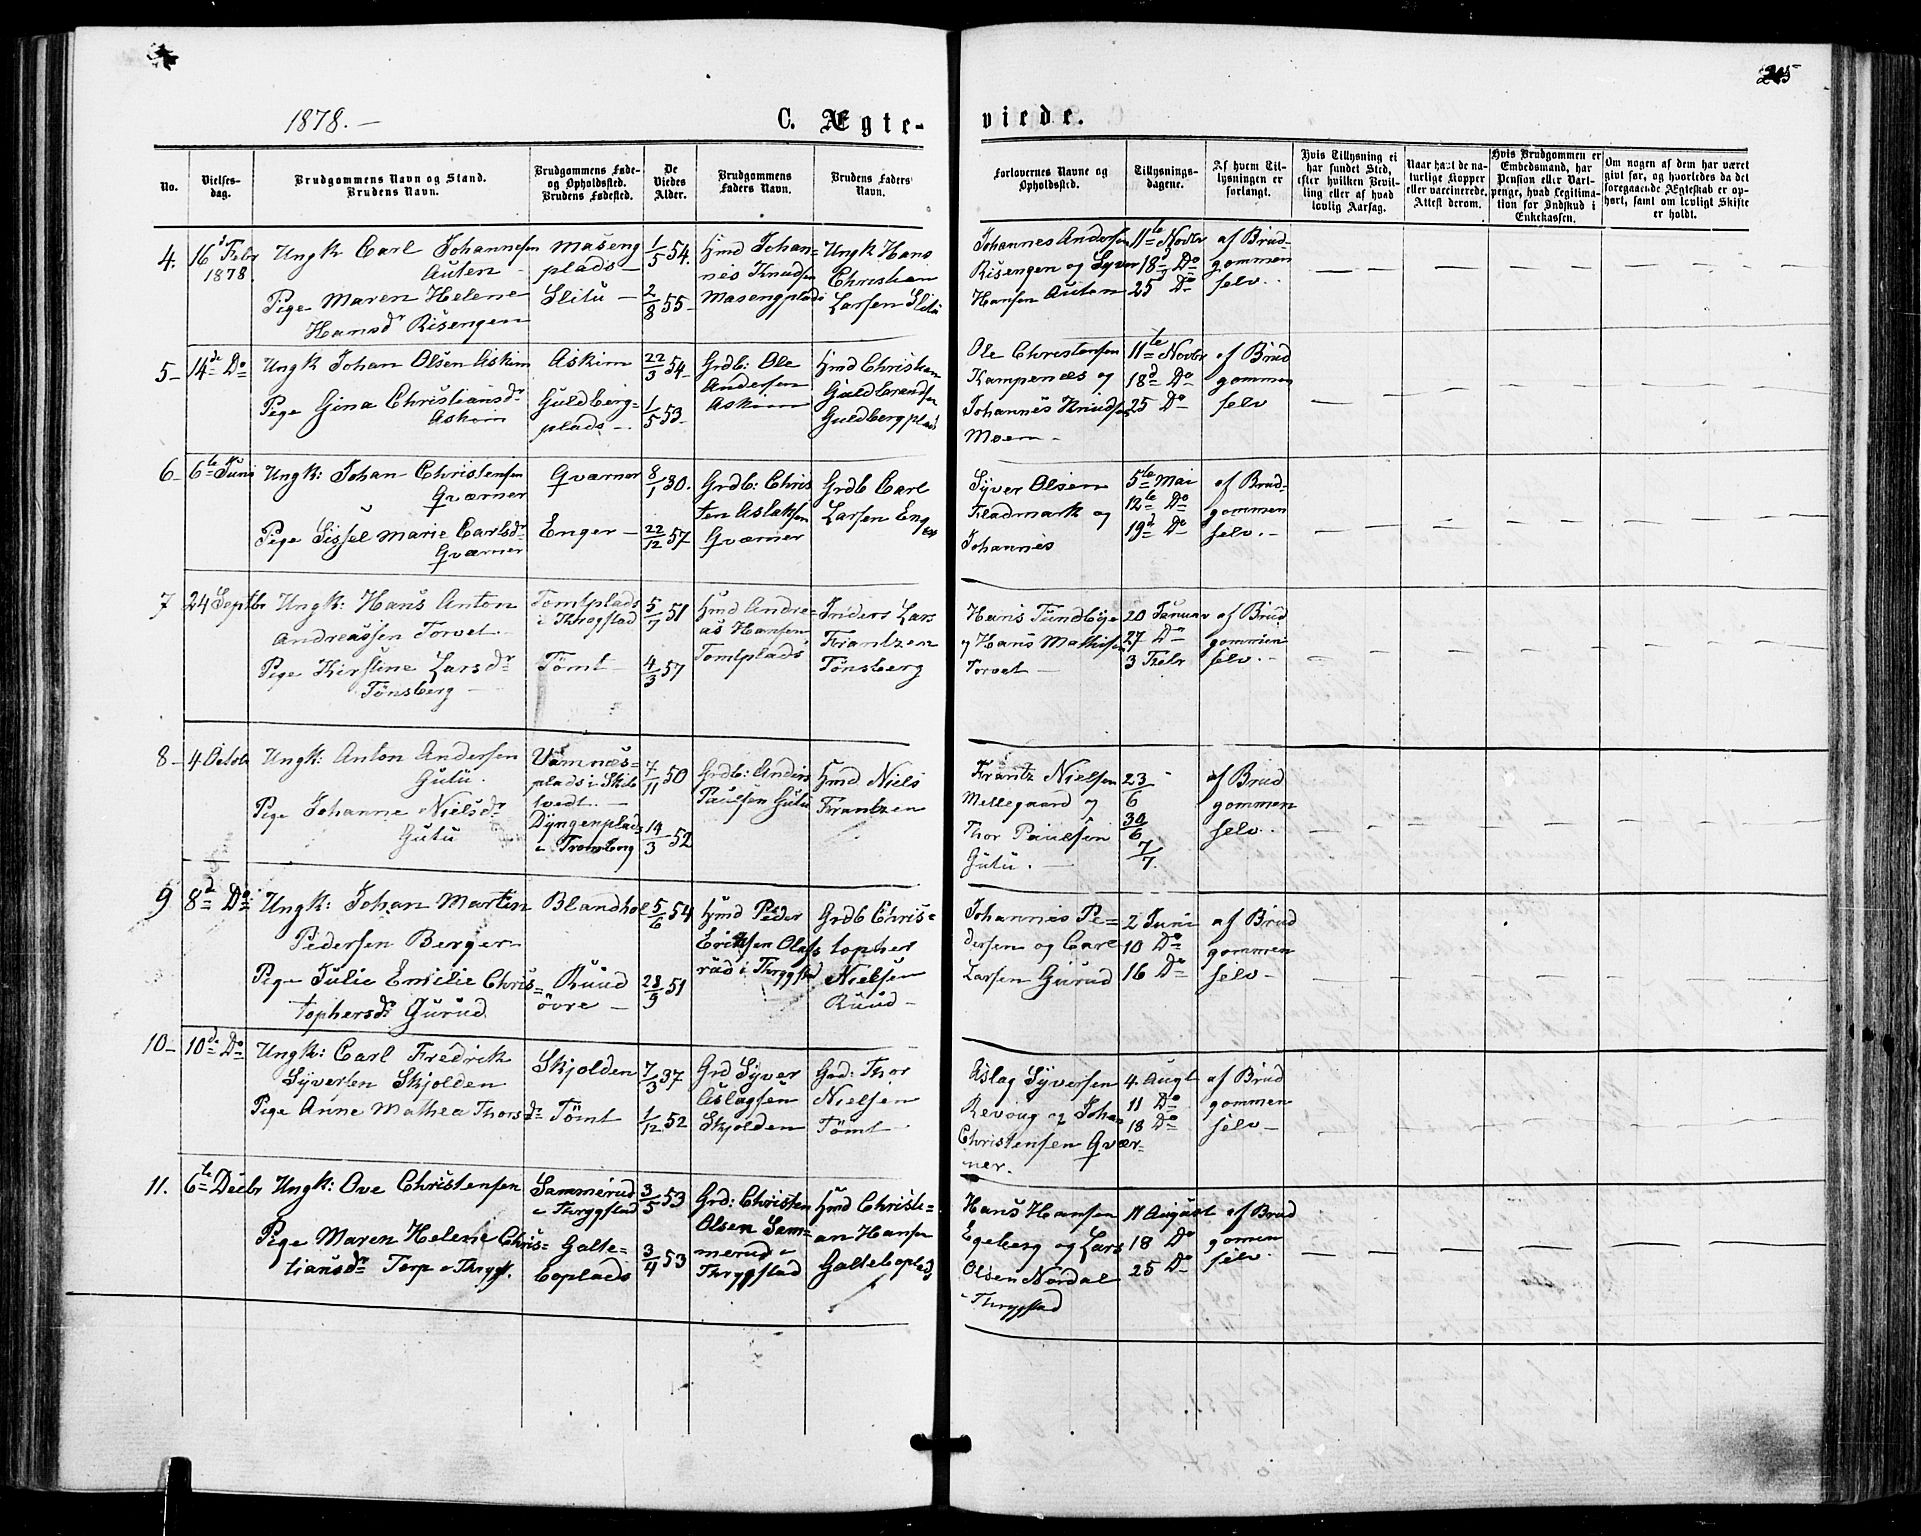 245
1878.—
C. Ægte-
viede.
No.
Vielses-
dag.
Brudgommens Navn og Stand.
Brudens Navn.
Brudgommens Føde-
og Opholdssted.
Brudens Fødested.
De
Viedes
Alder.
Brudgommens
Faders Navn.
Brudens Faders
Navn.
Forlovernes Navne og
Opholdssted.
Tillysnings-
dagene.
Af hvem Til-
lysningen er
forlangt.
Hvis Tillysning ei
har fundet Sted,
efter hvilken Bevil-
ling eller af hvad
lovlig Aarsag.
Naar havt de na-
turlige Kopper
eller vaccinerede.
Attest derom.
Hvis Brudgommen er
Embedsmand, har
Pension eller Vart-
penge, hvad Legitima-
tion for Indskud i
Enkekassen.
Om nogen af dem har været
gift før, og hvorledes da det
foregaaende Ægteskab er op-
hørt, samt om lovligt Skifte
er holdt.
4.
16d Febr
1878
Ungk Carl Johannesen
Auten -
Pige Maren Helene
Hansdr Risengen
Maseng
plads—
Slitu —
1/5 54.
2/8 55-
Hmd Johan=
nes Knudsen
Masengplads
Ungk Hans
Christian
Larsen Slitu
Johannes Andersen
Risengen og Syver
Hansen Auten
11te Novbr
18d Do
25 Do
af Brud-
gommen
selv..
5-
14de Do
Ungk Johan Olsen Askim
Pige Gina Christiansdr
Askim
Askim
Guldberg=
plads-.
22/3 54-
1/5 53-
Grdb: Ole
Andersen
Askim
Hmd Christian
Guldbrandsen
Guldbergplads
Ole Christensen
Kampenes og
Johannes Knudsen
Moen -
11te Novbr
18d Do
25 Do
af Brud
gommen
selv
6-
6te Juni
Ungk: Johan Christensen
Qværner
Pige Sissel Marie Carlsdr
Qværner
Qværner
Enger —
8/1 30.
22/12 57
Grdb: Chris
ten Aslaksen
Qværner
Grdb Carl
Larsen Enger
Syver Olsen
Fladmark og
Johannes
5te Mai
12te Do
19d Do
af Brud-
gommen
selv.-
7
24 Septbr
Ungk: Hans Anton
Andreassen Torvet
Pige Kirstine Larsdr
Tønsberg —
Tomtplads
i Thrøgstad
Tømt —
5/7 51
4/3 57
Hmd Andre=
as Hansen
Tomtplads
Inders Lars
Frantzen
Tønsberg
Hans Tundbye
og Hans Mathisen
Torvet —
20 Januar
27 Do
3 Febr
af Brud
gommen
selv.-
8-
4 Octob
Ungk: Anton Andersen
Gutu.
Pige Johanne Nielsdr
Gutu
Vamnes-
plads i Skib
tvedt. —
Dyngenplads
i Tromborg
7/11 50
19/3 52
Grdb: Anders
Paulsen Gutu
Hmd Niels
Frantzen
Frantz Nielsen
Mellegaard og
Thor Paulsen
Gutu. —
23/6
30/6
7/7.
af Brud
gommen
selv..
9
8d Do
Ungk: Johan Martin
Pedersen Berger
Pige Julie Emilie Chris=
tophersdr Gurud
Blandhol
Ruud
övre —
5/6 54
28/9 51
Hmd Peder
Eriksen Olafs
rud i Thrygstad
Grdb Chris=
topher
Nielsen
Ruud-
Johannes Pe-
dersen og Carl
Larsen Gurud
2 Juni
10 Do
16 Do
af Brud
gommen
selv-
10-
10de Do
Ungk: Carl Fredrik
Syversen Skjolden
Pige Anne Mathea Thorsdr
Skjolden
Tömt
7/3 37
1/12 52
Grd Syver
Aslagsen
Skjolden
Grd: Thor
Nielsen
Tömt
Aslag Syversen
Revoug og Joha
Christensen Qvær-
ner.
4. Augt
11 Do
18 Do
af Brud
gommen
selv-
11.
6te Decbr
Ungk: Ove Christensen
Pige Maren Helene Chris=
tiansdr Torp i Thrygst.
Sammerud
i Thrygstad
Galte=
boplads
3/5 53
3/4 53
Grd: Christen
Olsen Sam-
merud i
Thrygstad
Hmd Christi=
an Hansen
Galteboplads
Hans Hansen
Egeberg og Lars
Olsen Nordal
i Thrygstad
11 August
18 Do
25 Do
af Brud
gomen
selv.